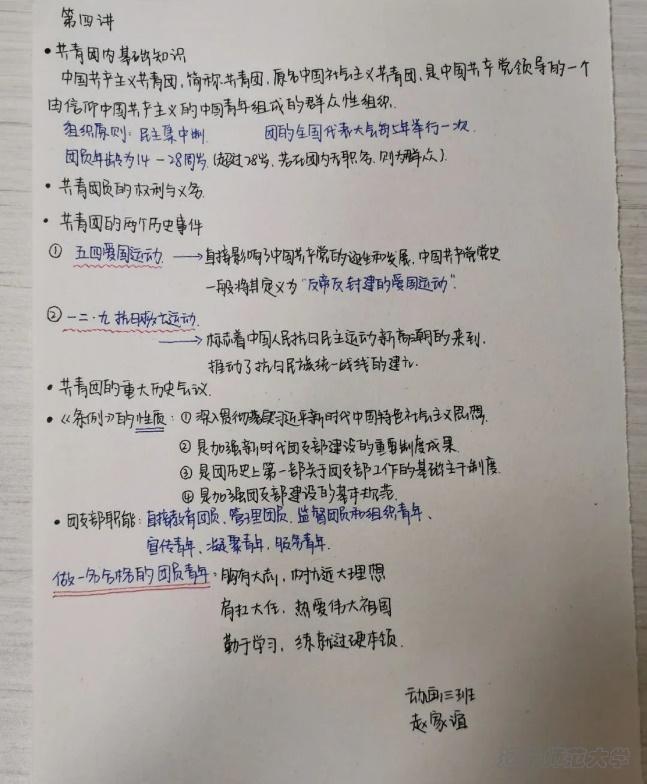 第四讲
• 共青团内基础知识
中国共产主义共青团,简称共青团,原名中国社会主义共青团,是中国共产党领导的一个
由信仰中国共产主义的中国青年组成的群众性组织.
组织原则:民主集中制 团的全国代表大会每5年举行一次.
团员年龄为14-28周岁(超过28岁,若在团内无职务,则为群众).
• 共青团员的权利与义务.
• 共青团的两个历史事件
① 五四爱国运动. → 直接影响了中国共产党的诞生和发展,中国共产党党史
一般将其定义为“反帝反封建的爱国运动”.
② 一二·九抗日救亡运动.
→ 标志着中国人民抗日民主运动新高潮的来到.
推动了抗日民族统一战线的建立.
• 共青团的重大历史会议.
• 《条例》的性质:① 深入贯彻落实习近平新时代中国特色社会主义思想.
② 是加强新时代团支部建设的重要制度成果.
③ 是团历史上第一部关于团支部工作的基础主干制度.
④ 是加强团支部建设的基本规范.
• 团支部职能:直接教育团员、管理团员、监督团员和组织青年、
宣传青年、凝聚青年、服务青年.
做一名合格的团员青年:胸有大志,树远大理想
肩扛大任,热爱伟大祖国
勤于学习,练就过硬本领.
动画三班
赵家谊
师范大学